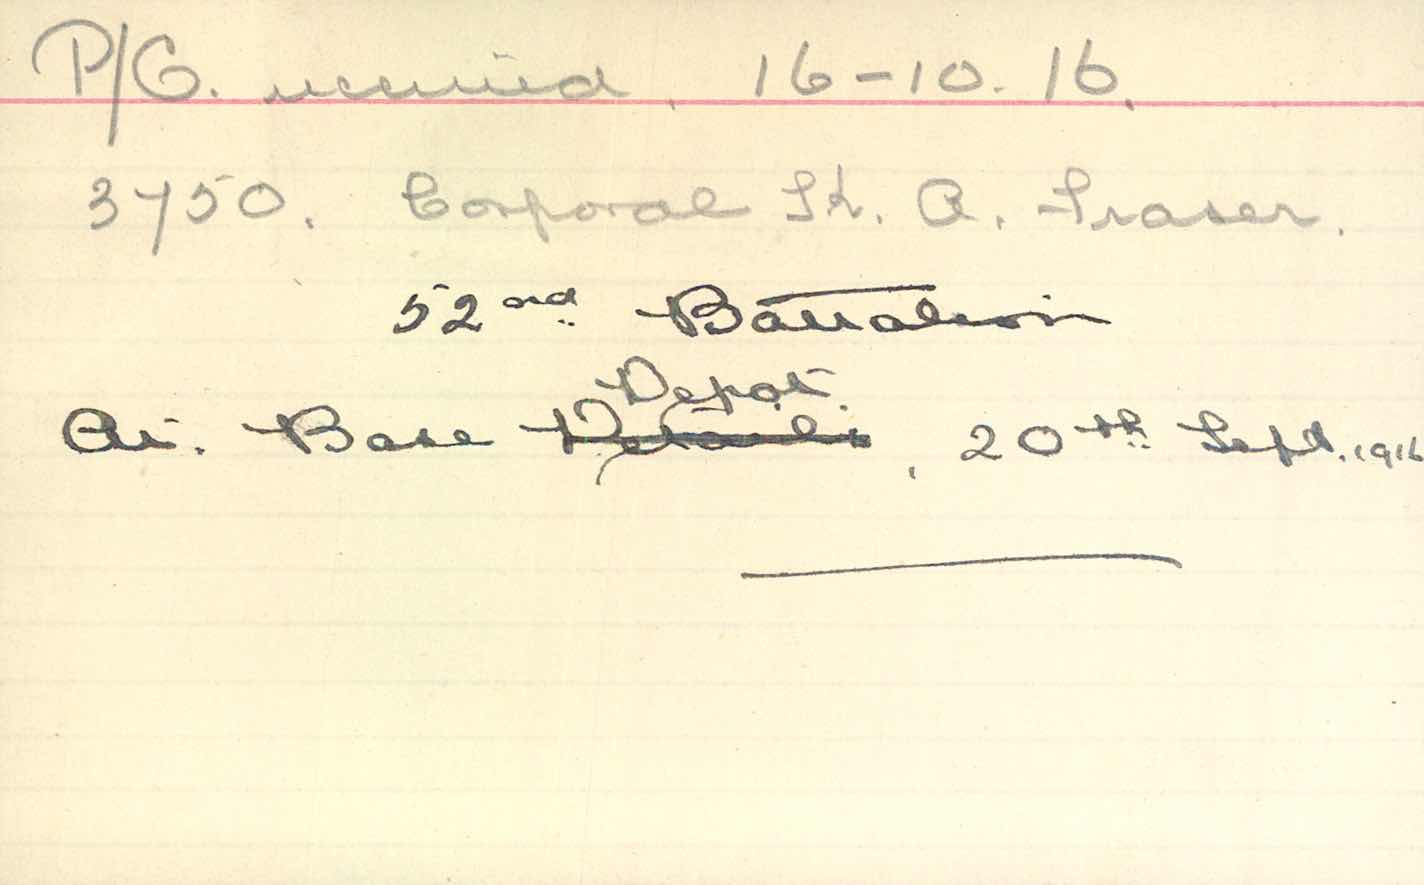 P/C. received. 16-10.16.
3750. Corporal H. A. Fraser.
52nd Battalion
Depot.
At. Base Details, 20th Sept. 1916